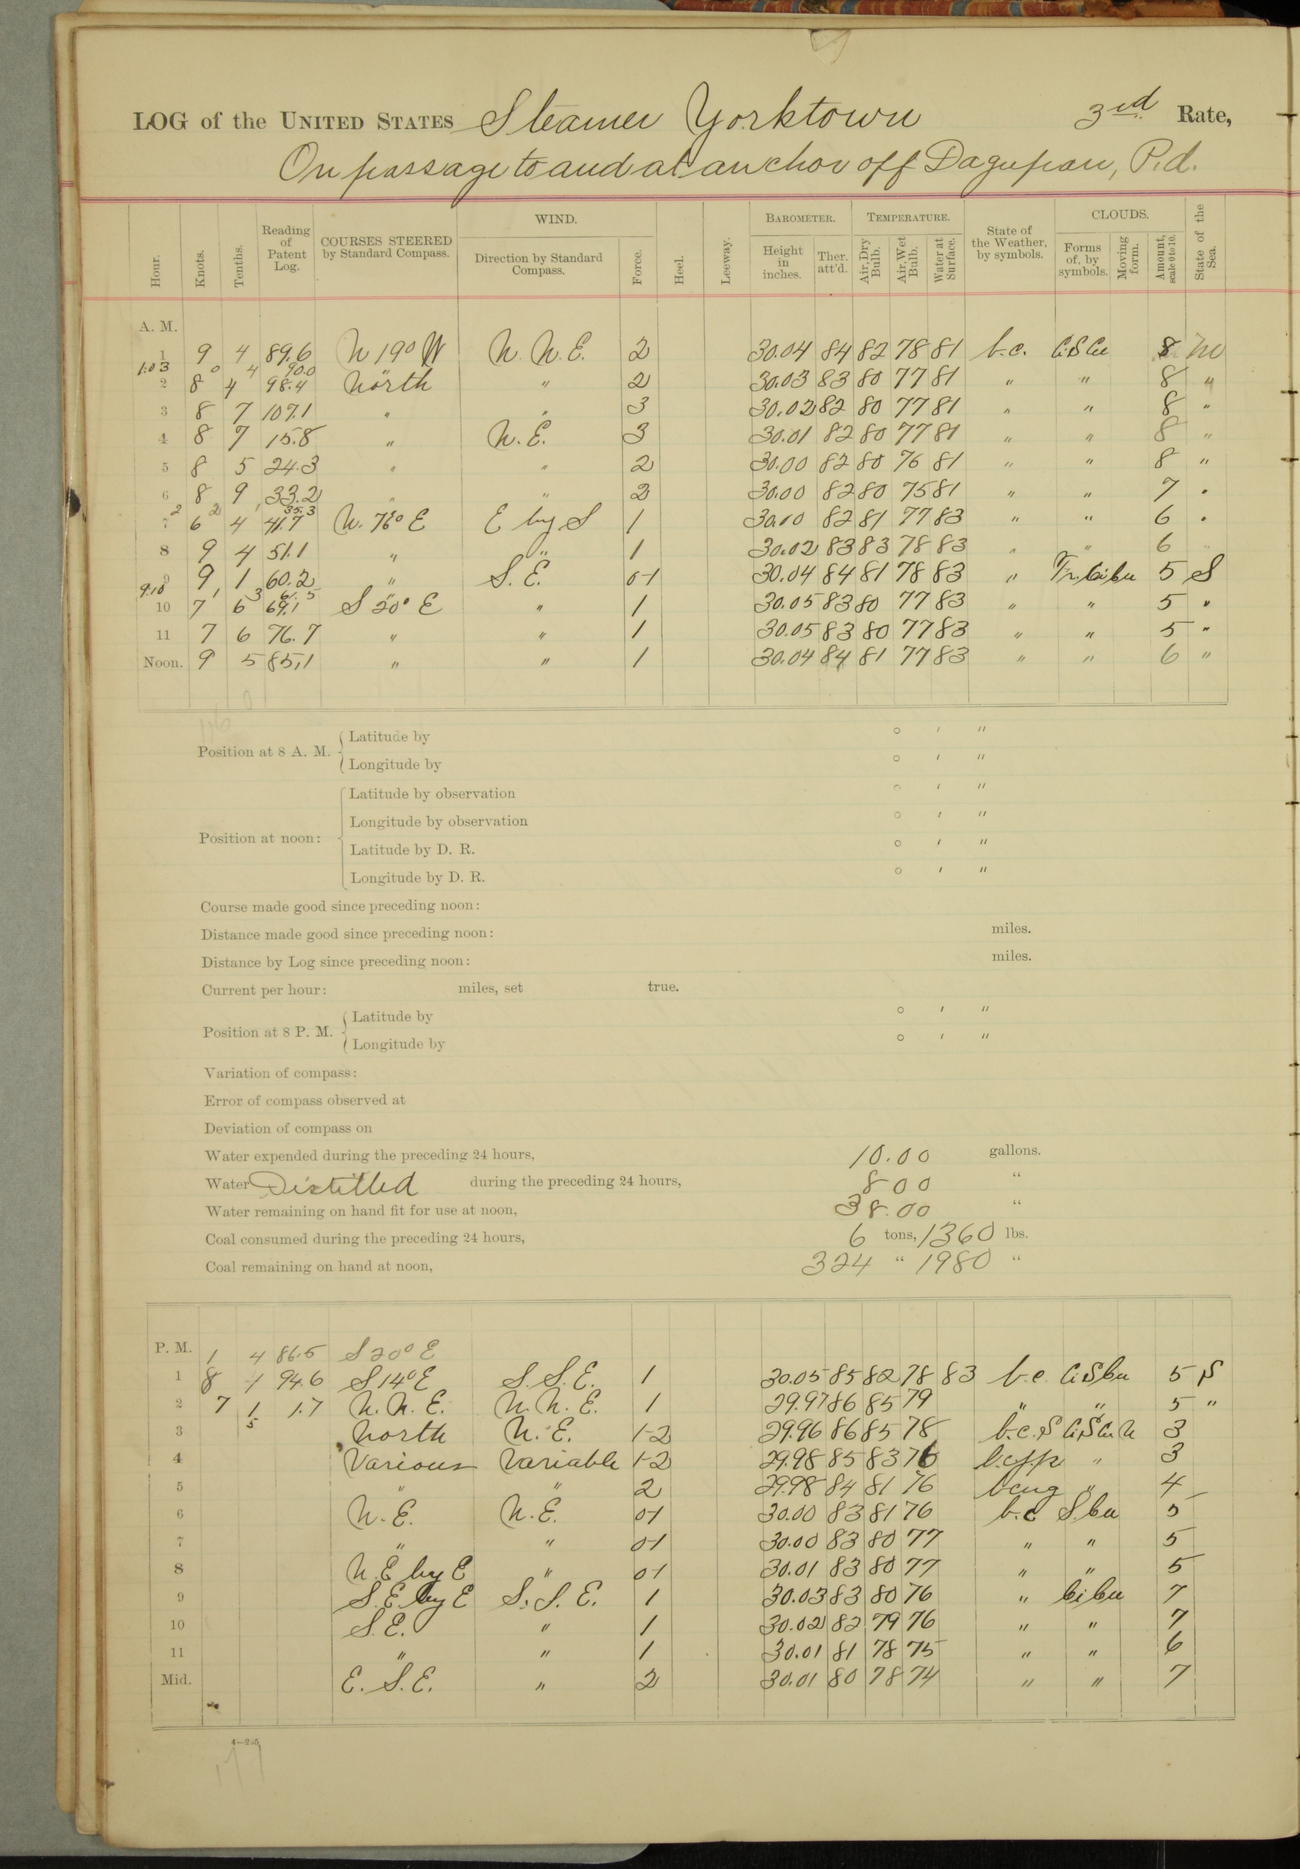 LOG of the UNITED STATES Steamer Yorktown 3rd Rate,
On passage to and at anchor off Dagupan, P.I.
Hour. Knots. Tenths. Reading of Patent Log. COURSES STEERED by Standard Compass. WIND. Direction by Standard Compass. Force. Heel. Leeway. BAROMETER. Height in inches. Ther. att'd. TEMPERATURE. Air, Dry Bulb. Air, Wet Bulb. Water at Surface. State of the Weather, by symbols. CLOUDS. Forms of, by symbols. Moving form. Amount, scale 0 to 10. State of the Sea.
A. M.
1 9 4 89.6 N 19° W N. N. E. 2 30.04 84 82 78 81 b.c. Ci.S.Cu 8 M
1:03 0 4 90.0
2 8 4 98.4 North " 2 30.03 83 80 77 81 " " 8 "
3 8 7 107.1 " " 3 30.02 82 80 77 81 " " 8 "
4 8 7 15.8 " N. E. 3 30.01 82 80 77 81 " " 8 "
5 8 5 24.3 " " 2 30.00 82 80 76 81 " " 8 "
6 8 9 33.2 " " 2 30.00 82 80 75 81 " " 7 "
2 2 1 35.3
7 6 4 41.7 N. 73° E E by S 1 30.00 82 81 77 83 " " 6 "
8 9 4 51.1 " " 1 30.02 83 83 78 83 " " 6 "
9 9 1 60.2 " S. E. 0-1 30.04 84 81 78 83 " Fr.Ci.Cu 5 S
9:10 1 3 61.5
10 7 6 69.1 S 20° E " 1 30.05 83 80 77 83 " " 5 "
11 7 6 76.7 " " 1 30.05 83 80 77 83 " " 5 "
Noon. 9 5 85.1 " " 1 30.04 84 81 77 83 " " 6 "
Position at 8 A. M. Latitude by ° ' "
Longitude by ° ' "
Position at noon: Latitude by observation ° ' "
Longitude by observation ° ' "
Latitude by D. R. ° ' "
Longitude by D. R. ° ' "
Course made good since preceding noon:
Distance made good since preceding noon: miles.
Distance by Log since preceding noon: miles.
Current per hour: miles, set true.
Position at 8 P. M. Latitude by ° ' "
Longitude by ° ' "
Variation of compass:
Error of compass observed at
Deviation of compass on
Water expended during the preceding 24 hours, 10.00 gallons.
Water Distilled during the preceding 24 hours, 800 "
Water remaining on hand fit for use at noon, 38.00 "
Coal consumed during the preceding 24 hours, 6 tons, 1360 lbs.
Coal remaining on hand at noon, 324 " 1980 "
P. M. 1 4 86.5 S 20° E
1 8 1 94.6 S 14° E S. S. E. 1 30.05 85 82 78 83 b.c Ci.S.Cu 5 S
2 7 1 1.7 N. N. E. N. N. E. 1 29.97 86 85 79 " " 5 "
5
3 North N. E. 1-2 29.96 86 85 78 3
4 Various Variable 1-2 29.98 85 83 76 " 3
5 " " 2 29.98 84 81 76 " 4
6 N. E. N. E. 0-1 30.00 83 81 76 b.c S.Cu 5
7 " " 0-1 30.00 83 80 77 " " 5
8 N.E by E " 0-1 30.01 83 80 77 " " 5
9 S.E by E S. S. E. 1 30.03 83 80 76 " Ci.Cu 7
10 S.E. " 1 30.02 82 79 76 " " 7
11 " " 1 30.01 81 78 75 " " 6
Mid. E. S. E. " 2 30.01 80 78 74 " " 7
4—2.5